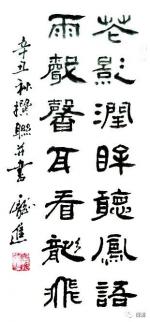 花影润眸聽鳳語
雨聲馨耳看龍飛
辛丑秋撰聯并書